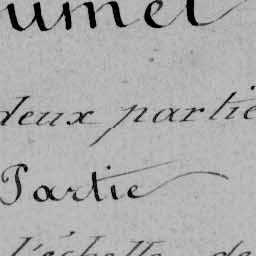 umet
deux partie
Partie
l'échelle de